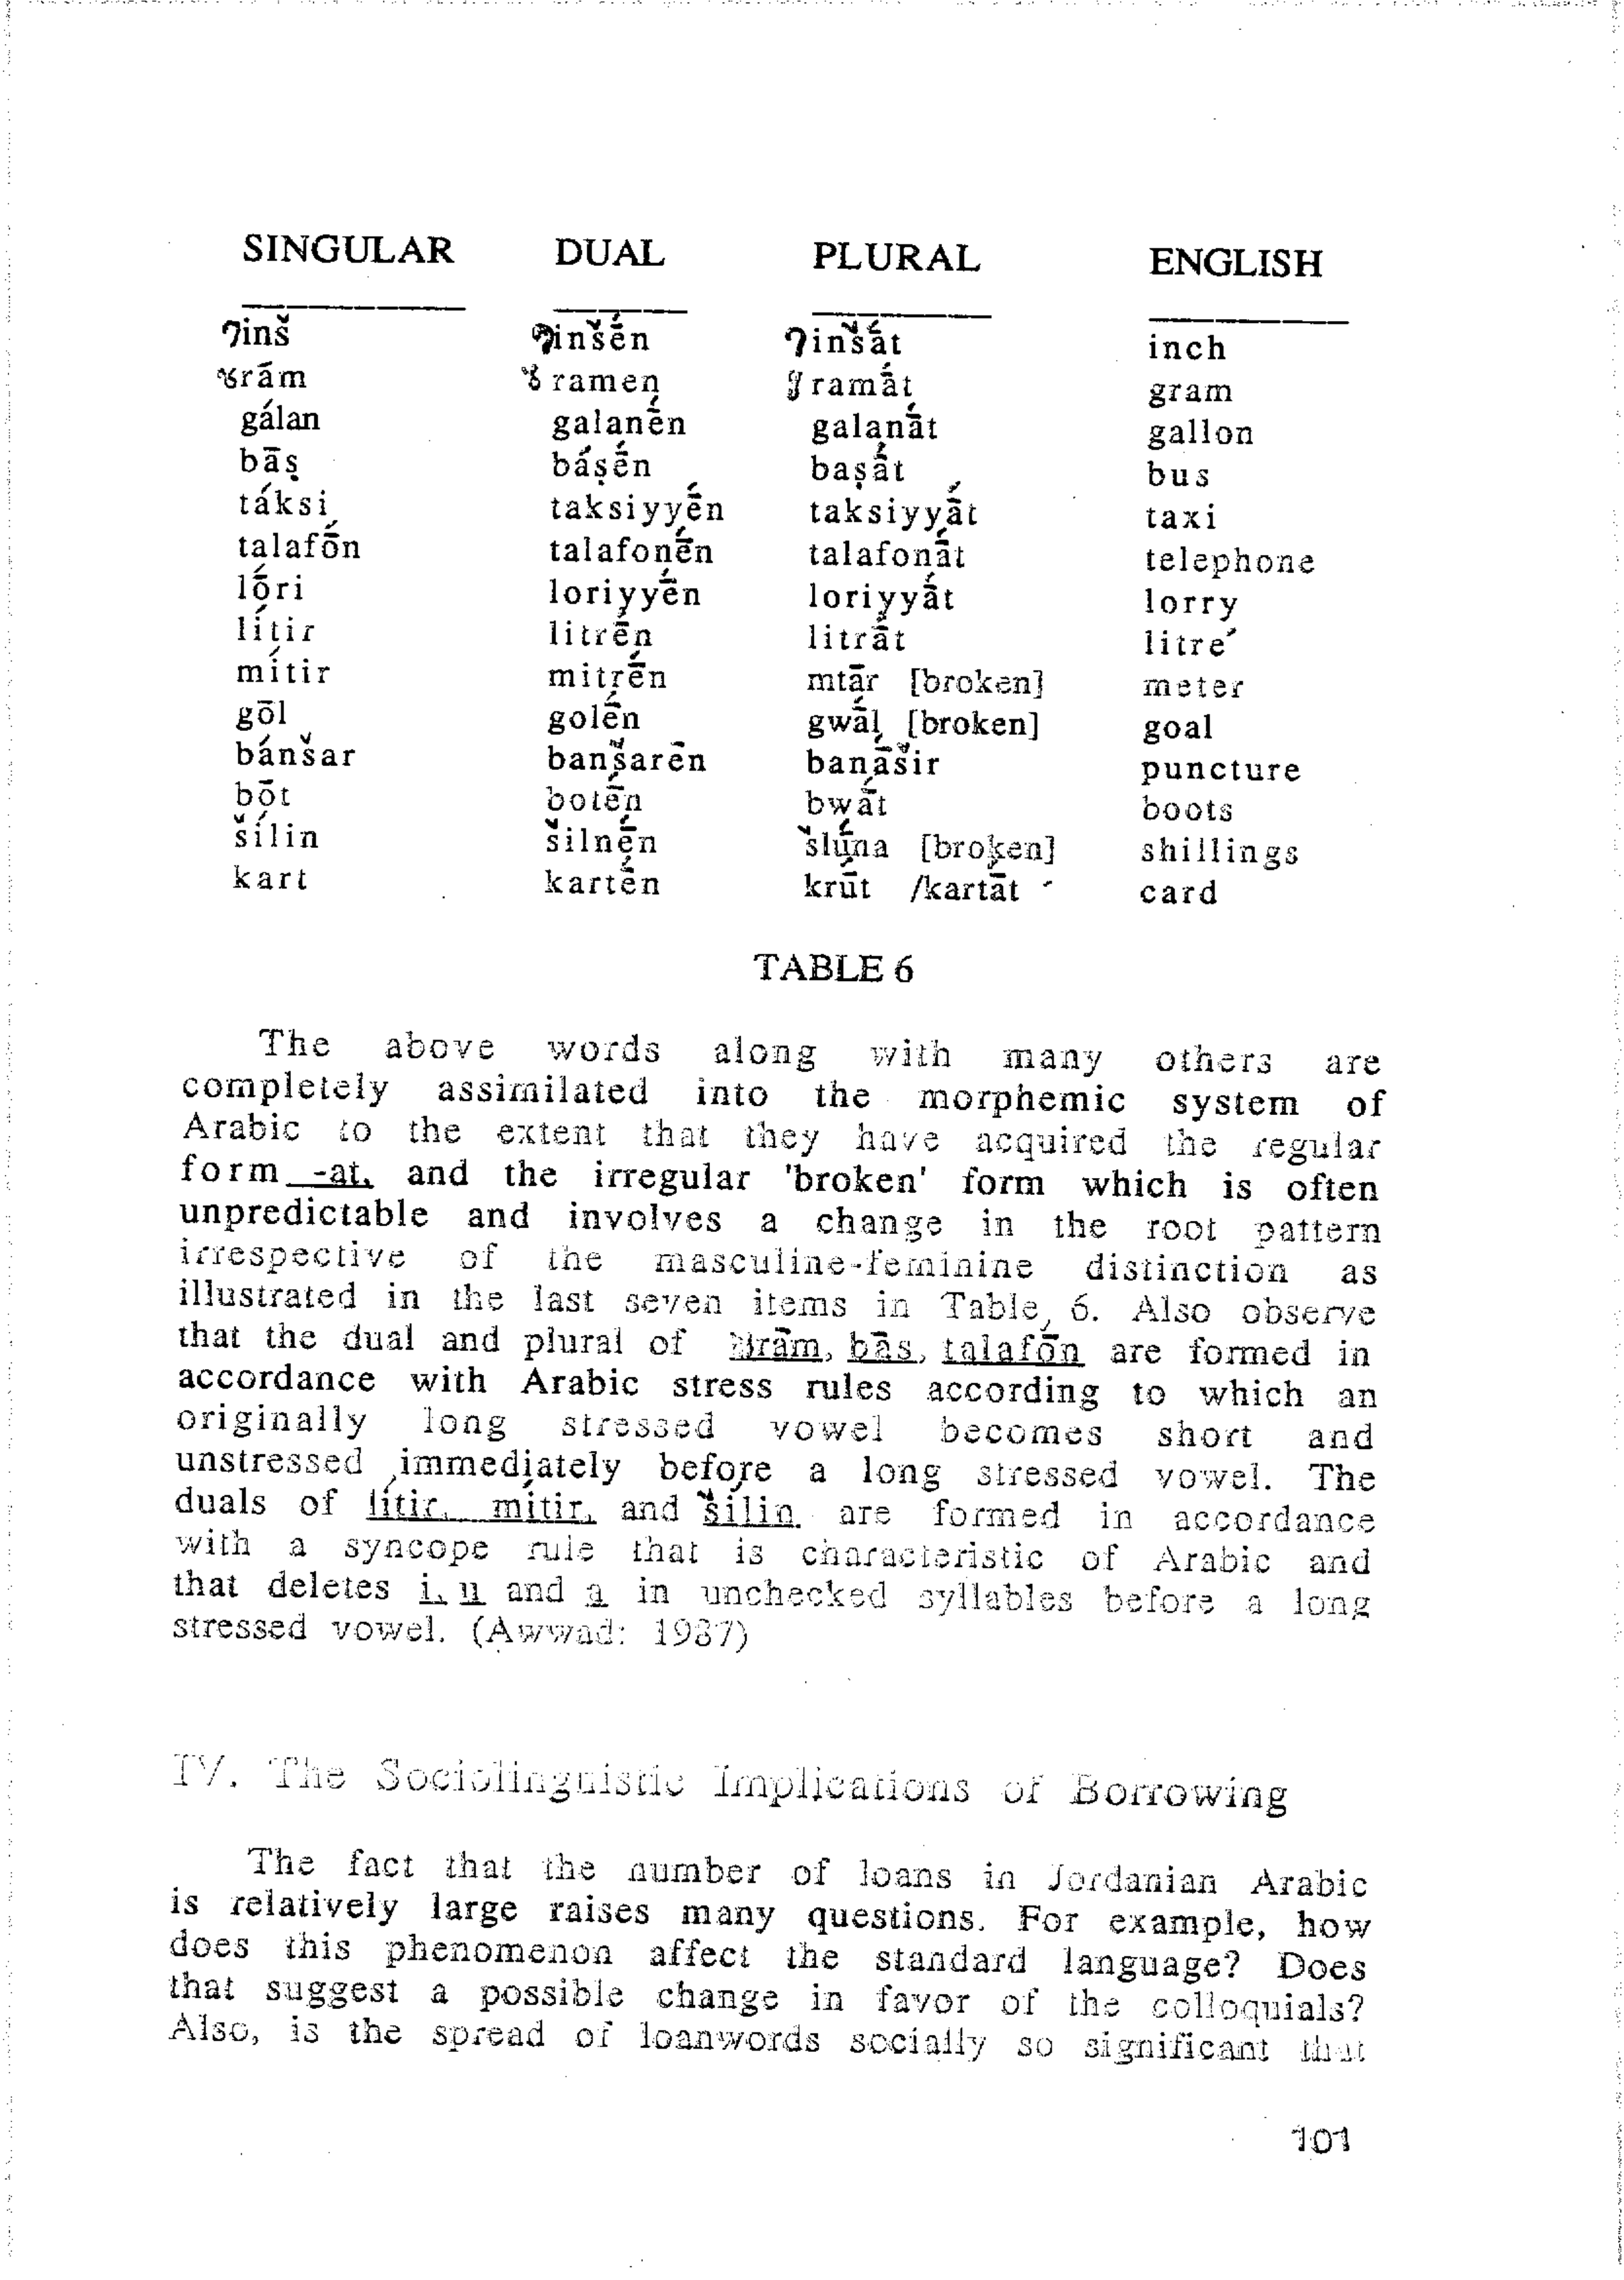 SINGULAR DUAL PLURAL ENGLISH
ʔinš ʔinšḗn ʔinšā́t inch
ɣrām ɣramen ɣramā́t gram
gálan galanḗn galanā́t gallon
bāṣ báṣḗn baṣā́t bus
táksi taksiyyḗn taksiyyā́t taxi
talafṓn talafonḗn talafonā́t telephone
lṓri loriyyḗn loriyyā́t lorry
lítir litrḗn litrāt litre
mítir mitrḗn mtār [broken] meter
gōl golḗn gwā́l [broken] goal
bánšar banšarēn banāšir puncture
bōt botḗn bwā́t boots
šílin šilnḗn šlū́na [broken] shillings
kart kartḗn krū́t /kartāt card
TABLE 6
The above words along with many others are
completely assimilated into the morphemic system of
Arabic to the extent that they have acquired the regular
form -at, and the irregular 'broken' form which is often
unpredictable and involves a change in the root pattern
irrespective of the masculine-feminine distinction as
illustrated in the last seven items in Table 6. Also observe
that the dual and plural of ɣrām, bās, talafōn are formed in
accordance with Arabic stress rules according to which an
originally long stressed vowel becomes short and
unstressed immediately before a long stressed vowel. The
duals of lítir, mítir, and šílin are formed in accordance
with a syncope rule that is characteristic of Arabic and
that deletes i, u and a in unchecked syllables before a long
stressed vowel. (Awwad: 1987)
IV. The Sociolinguistic Implications of Borrowing
The fact that the number of loans in Jordanian Arabic
is relatively large raises many questions. For example, how
does this phenomenon affect the standard language? Does
that suggest a possible change in favor of the colloquials?
Also, is the spread of loanwords socially so significant that
101